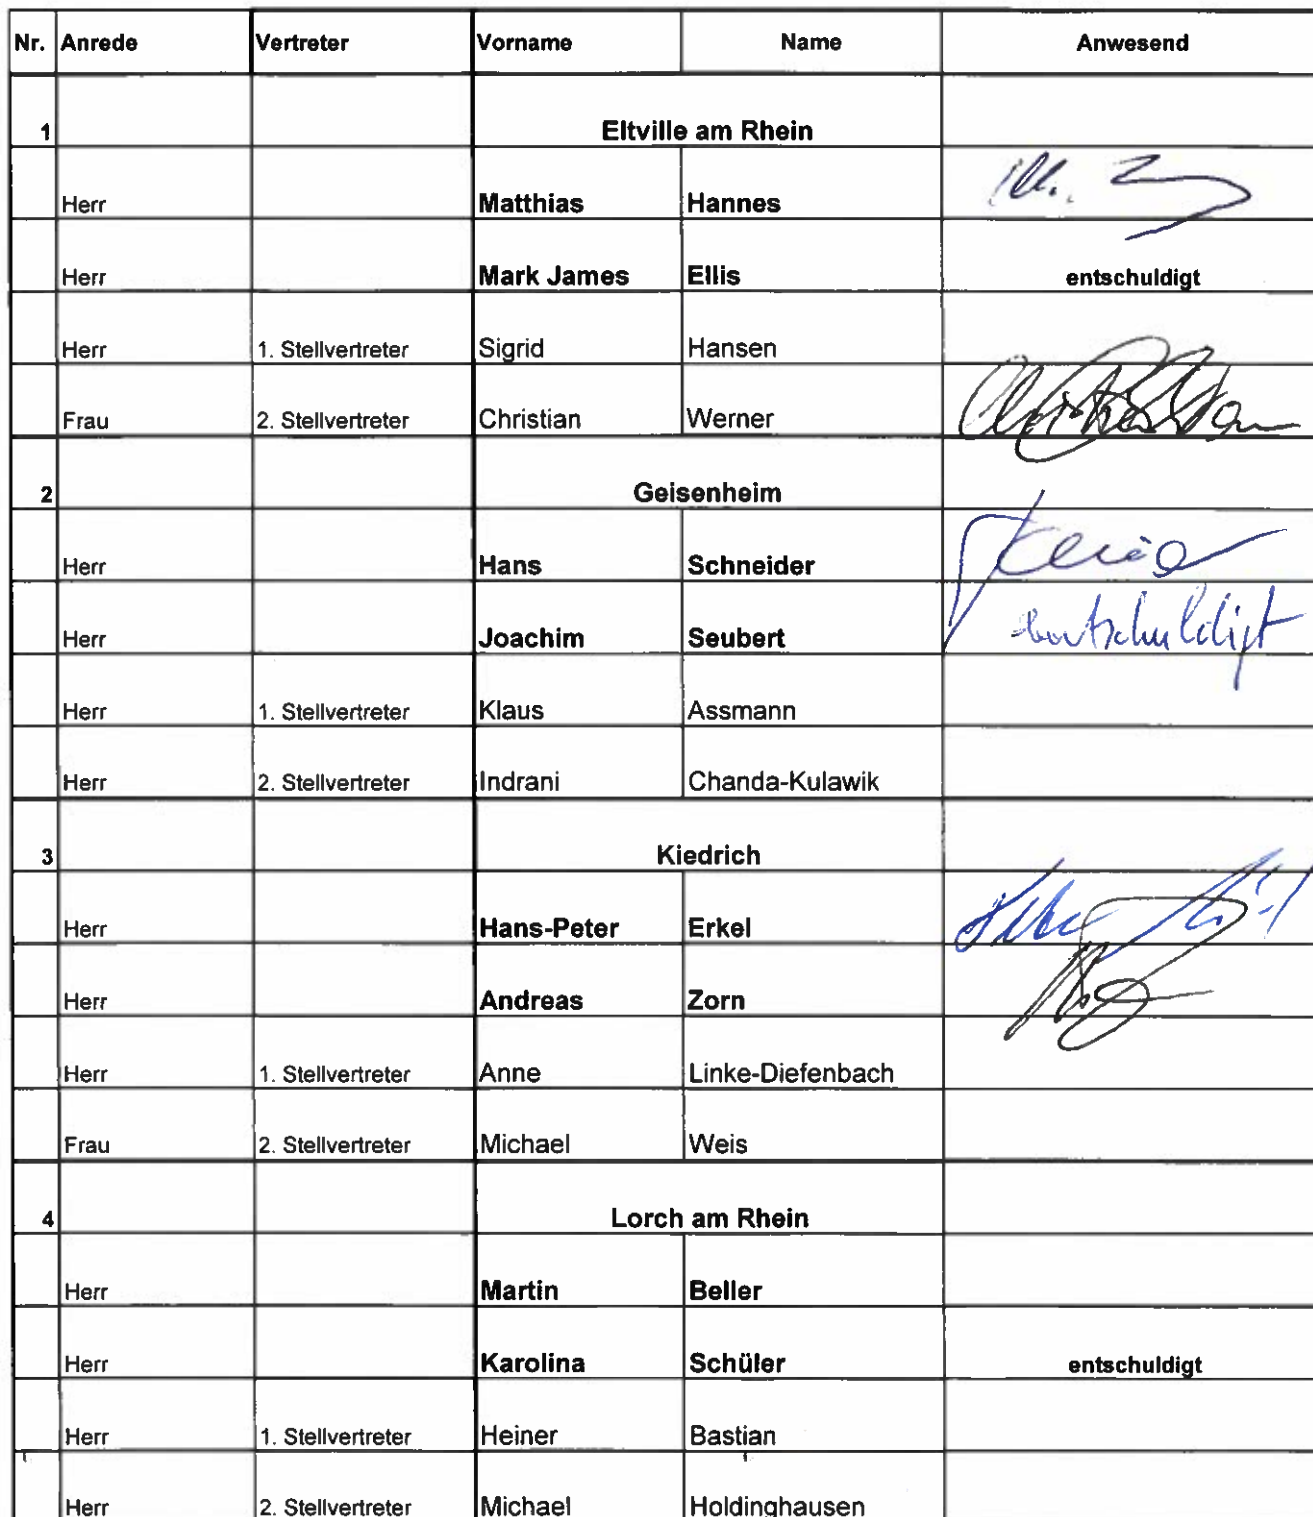 Nr. Anrede Vertreter Vorname Name Anwesend
1 Eltville am Rhein
Herr Matthias Hannes
Herr Mark James Ellis entschuldigt
Herr 1. Stellvertreter Sigrid Hansen
Frau 2. Stellvertreter Christian Werner
2 Geisenheim
Herr Hans Schneider
Herr Joachim Seubert entschuldigt
Herr 1. Stellvertreter Klaus Assmann
Herr 2. Stellvertreter Indrani Chanda-Kulawik
3 Kiedrich
Herr Hans-Peter Erkel
Herr Andreas Zorn
Herr 1. Stellvertreter Anne Linke-Diefenbach
Frau 2. Stellvertreter Michael Weis
4 Lorch am Rhein
Herr Martin Beller
Herr Karolina Schüler entschuldigt
Herr 1. Stellvertreter Heiner Bastian
Herr 2. Stellvertreter Michael Holdinghausen